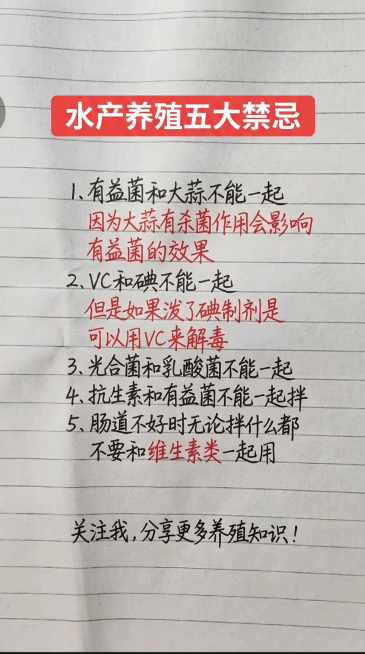 水产养殖五大禁忌
1、有益菌和大蒜不能一起
因为大蒜有杀菌作用会影响
有益菌的效果
2、VC和碘不能一起
但是如果泼了碘制剂是
可以用VC来解毒
3、光合菌和乳酸菌不能一起
4、抗生素和有益菌不能一起拌
5、肠道不好时无论拌什么都
不要和维生素类一起用
关注我,分享更多养殖知识!